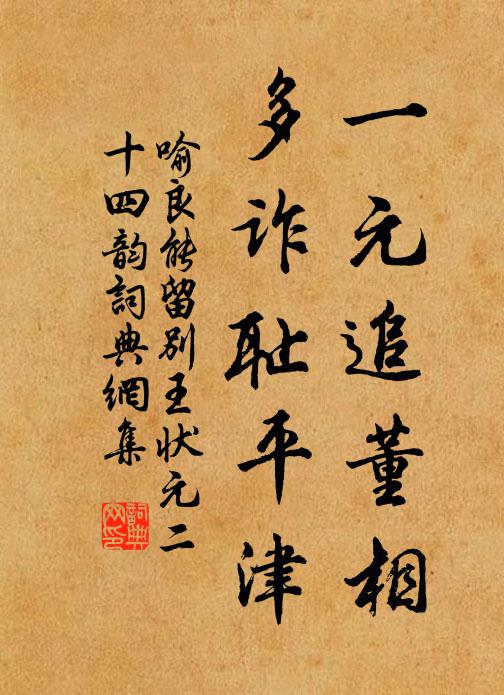 一元追董相
多诈耻平津
喻良能留别王状元二
十四韵詞典網集
詞典網印